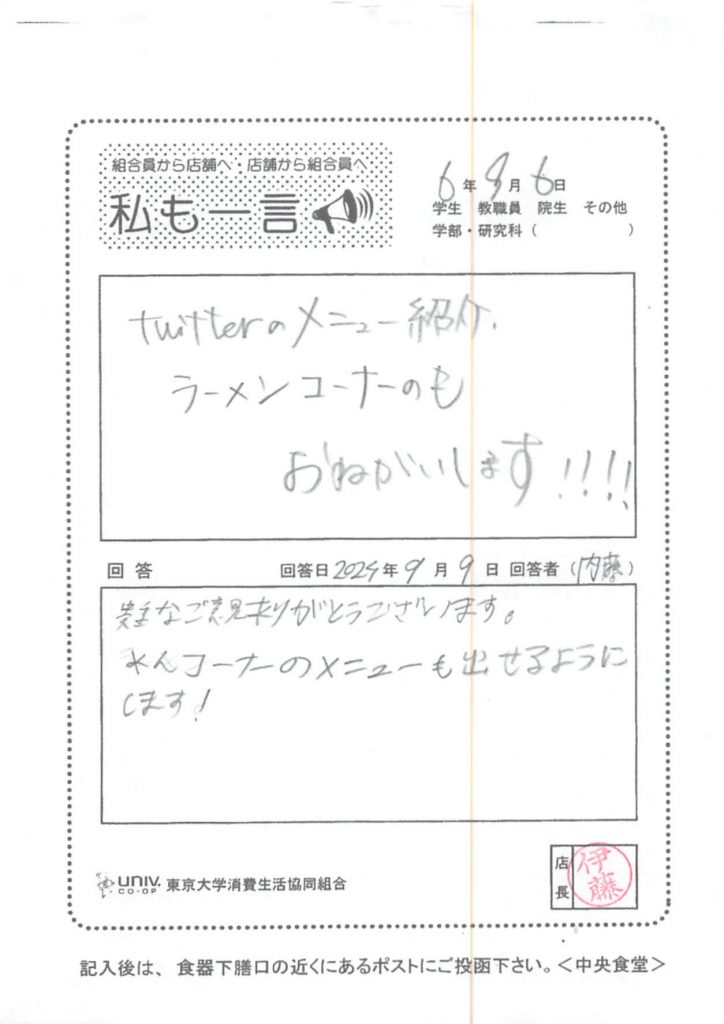 組合員から店舗へ・店舗から組合員へ
私も一言
6年9月6日
学生 教職員 院生 その他
学部・研究科( )
twitterのメニュー紹介、
ラーメンコーナーのも
おねがいします!!!!
回答 回答日2024年9月9日 回答者(内藤)
貴重なご意見ありがとうございます。
めんコーナーのメニューも出せるように
します!
UNIV. CO-OP 東京大学消費生活協同組合
店長 伊藤
記入後は、食器下膳口の近くにあるポストにご投函下さい。<中央食堂>